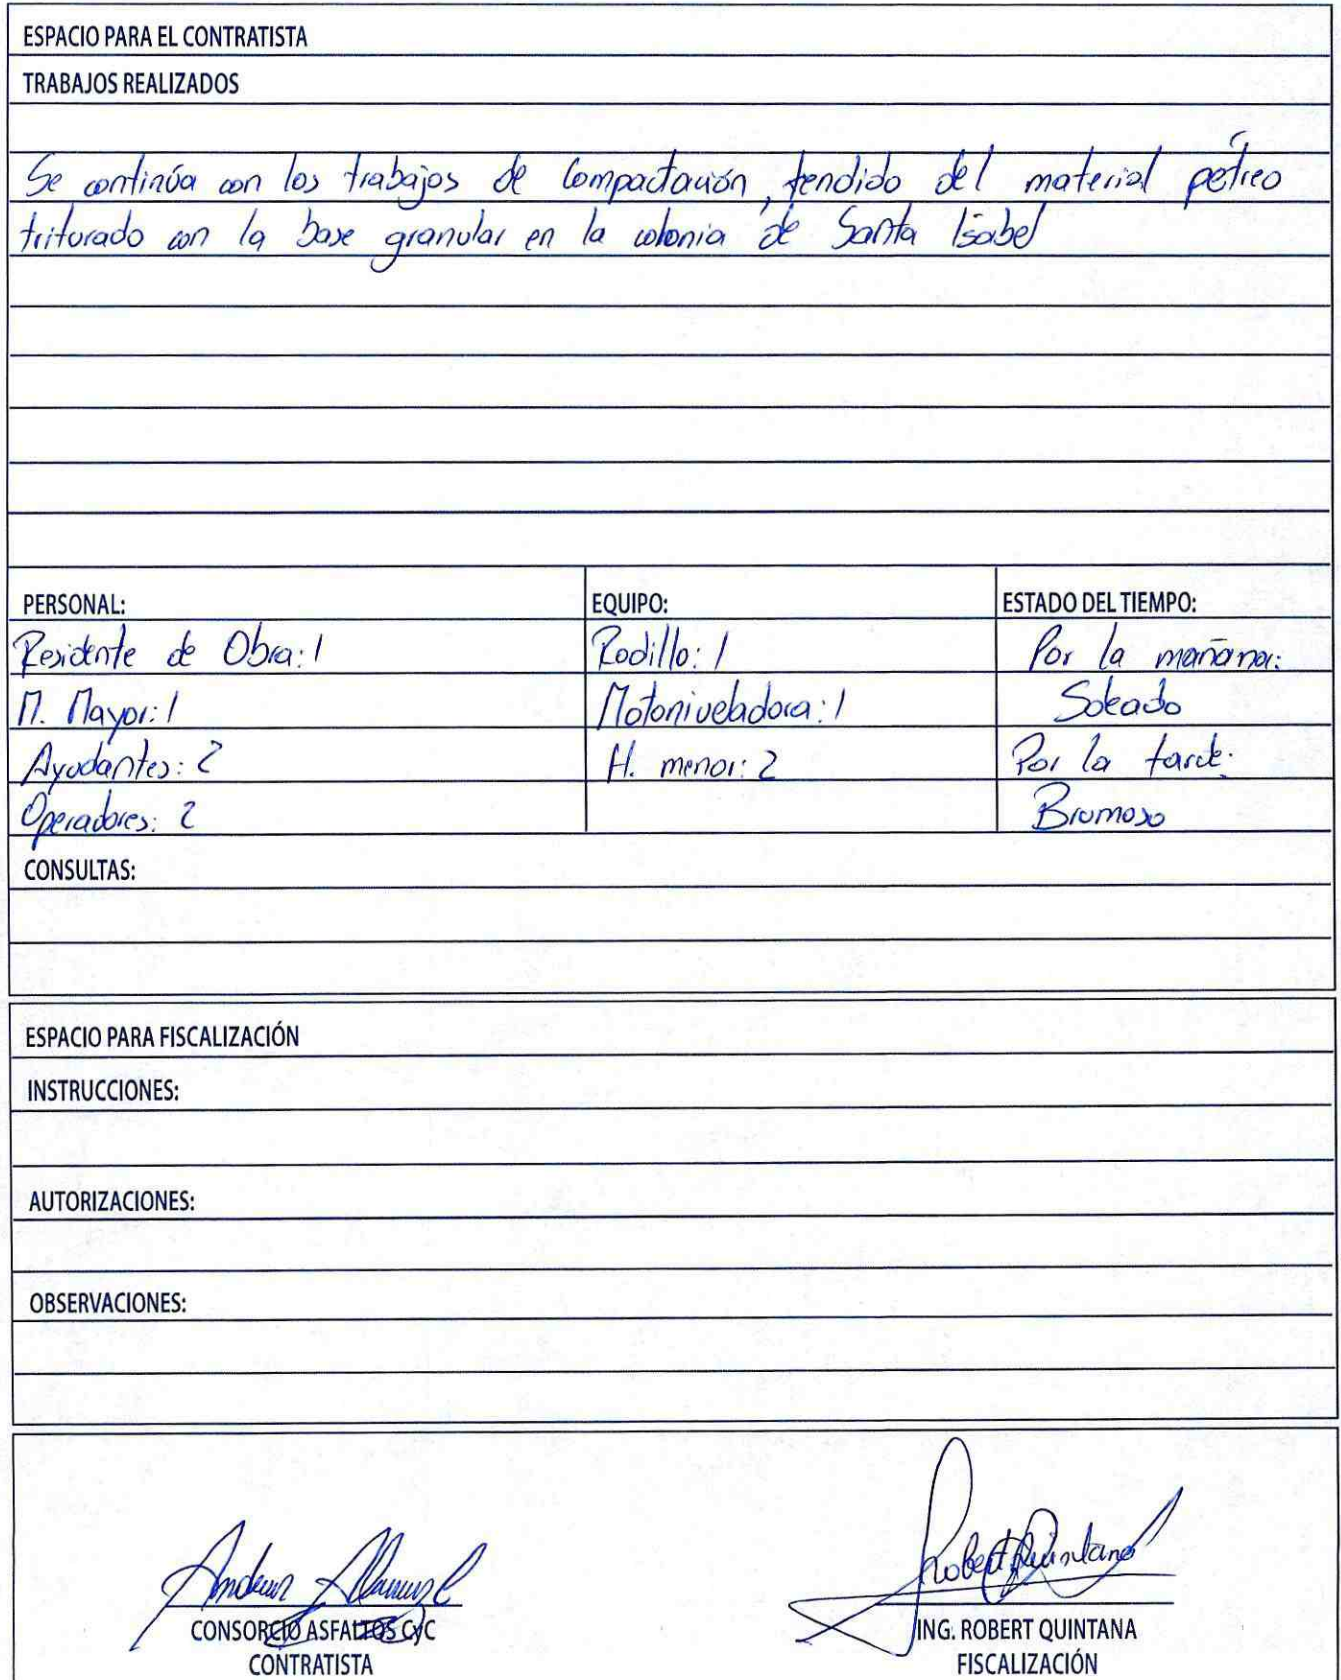 ESPACIO PARA EL CONTRATISTA
TRABAJOS REALIZADOS
Se continúa con los trabajos de Compactación, tendido del material pétreo
triturado con la base granular en la colonia de Santa Isabel
PERSONAL: EQUIPO: ESTADO DEL TIEMPO:
Residente de Obra: 1 Rodillo: 1 Por la mañana:
M. Mayor: 1 Motoniveladora: 1 Soleado
Ayudantes: 2 H. menor: 2 Por la tarde:
Operadores: 2 Brumoso
CONSULTAS:
ESPACIO PARA FISCALIZACIÓN
INSTRUCCIONES:
AUTORIZACIONES:
OBSERVACIONES:
Robert Quintana
CONSORCIO ASFALTOS CyC ING. ROBERT QUINTANA
CONTRATISTA FISCALIZACIÓN